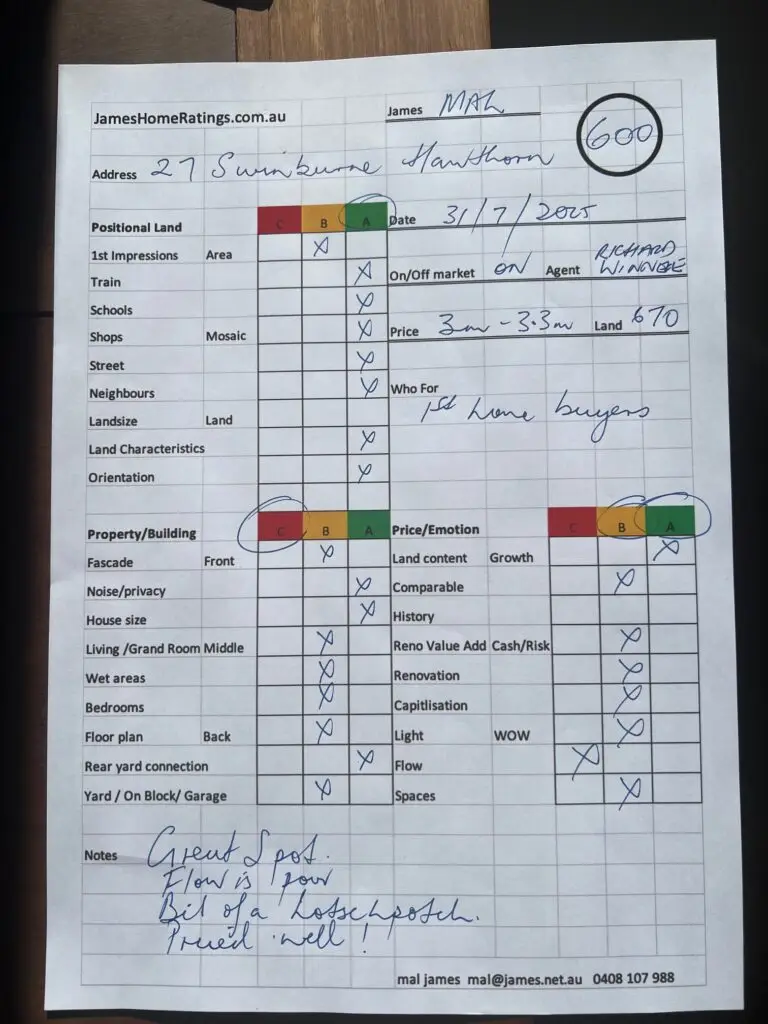 JamesHomeRatings.com.au James MAL 600
Address 27 Swinburne Hawthorn
Positional Land C B A Date 31/7/2025
1st Impressions Area X
Train X On/Off market ON Agent RICHARD WINNEKE
Schools X
Shops Mosaic X Price 3m - 3.3m Land 670
Street X
Neighbours X Who For
Landsize Land 1st home buyers
Land Characteristics X
Orientation X
Property/Building C B A Price/Emotion C B A
Fascade Front X Land content Growth X
Noise/privacy X Comparable X
House size X History
Living /Grand Room Middle X Reno Value Add Cash/Risk X
Wet areas X Renovation X
Bedrooms X Capitlisation X
Floor plan Back X Light WOW X
Rear yard connection X Flow X
Yard / On Block/ Garage X Spaces X
Notes Great Spot.
Flow is poor
Bit of a hotschpotch.
Priced well!
mal james mal@james.net.au 0408 107 988